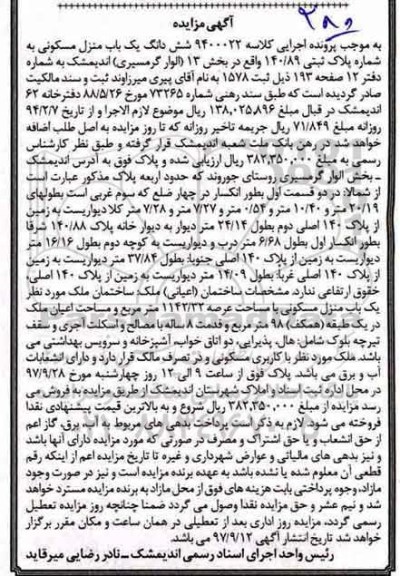 آگهی مزایده
به موجب پرونده اجرایی کلاسه ۹۴۰۰۰۲۲ شش دانگ یک باب منزل مسکونی به
شماره پلاک ثبتی ۱۴۰/۸۹ واقع در بخش ۱۳ (الوار گرمسیری) اندیمشک به شماره
دفتر ۱۲ صفحه ۱۹۳ ذیل ثبت ۱۵۷۸ به نام آقای پیری میرزاوند ثبت و سند مالکیت
صادر گردیده است که طبق سند رهنی شماره ۷۳۲۶۵ مورخ ۸۸/۵/۲۶ دفترخانه ۶۲
اندیمشک در قبال مبلغ ۱۳۸,۰۲۵,۸۹۶ ریال موضوع لازم الاجرا و از تاریخ ۹۴/۲/۷
روزانه مبلغ ۷۱/۸۴۹ ریال جریمه تاخیر روزانه که تا روز مزایده به اصل طلب اضافه
خواهد شد، در رهن بانک ملت شعبه اندیمشک قرار گرفته و طبق نظر کارشناس
رسمی به مبلغ ۳۸۲,۳۵۰,۰۰۰ ریال ارزیابی شده و پلاک فوق به آدرس اندیمشک
ـ بخش الوار گرمسیری روستای جوروند که حدود اربعه پلاک مذکور عبارت است
از شمالا: در دو قسمت اول بطور انکسار در چهار ضلع که سوم غربی است بطولهای
۲۰/۱۹ متر و ۱۰/۴۰ متر و ۰/۵۴ متر و ۷/۲۷ متر و ۷/۲۸ متر کلا دیواریست به زمین
از پلاک ۱۴۰ اصلی دوم بطول ۲۴/۱۴ متر دیوار به دیوار خانه پلاک ۱۴۰/۸۸ شرقا
بطور انکسار اول بطول ۶/۶۸ متر درب و دیواریست به کوچه دوم بطول ۱۶/۱۶ متر
دیواریست به زمین از پلاک ۱۴۰ اصلی جنوبا: بطول ۳۷/۸۴ متر دیواریست به زمین
از پلاک ۱۴۰ اصلی غربا: بطول ۱۴/۰۹ متر دیواریست به زمین از پلاک ۱۴۰ اصلی،
حقوق ارتفاعی ندارد. مشخصات ساختمان (اعیانی) ملک: ساختمان ملک مورد نظر
یک باب منزل مسکونی با مساحت عرصه ۱۱۴۲/۳۲ متر مربع و مساحت اعیان ملک
در یک طبقه (همکف) ۹۸ متر مربع و قدمت ۸ ساله با مصالح و اسکلت آجری و سقف
تیرچه بلوک شامل: هال، پذیرایی، دو اتاق خواب، آشپزخانه و سرویس بهداشتی می
باشد. ملک مورد نظر با کاربری مسکونی و در تصرف مالک قرار دارد و دارای انشعابات
آب و برق می باشد. پلاک فوق از ساعت ۹ الی ۱۲ روز چهارشنبه مورخ ۹۷/۹/۲۸
در محل اداره ثبت اسناد و املاک شهرستان اندیمشک از طریق مزایده به فروش می
رسد مزایده از مبلغ ۳۸۲,۳۵۰,۰۰۰ ریال شروع و به بالاترین قیمت پیشنهادی نقدا
فروخته می شود لازم به ذکر است پرداخت بدهی های مربوط به آب، برق، گاز اعم
از حق انشعاب و یا حق اشتراک و مصرف در صورتی که مورد مزایده دارای آنها باشد
و نیز بدهی های مالیاتی و عوارض شهرداری و غیره تا تاریخ مزایده اعم از اینکه رقم
قطعی آن معلوم شده یا نشده باشد به عهده برنده مزایده است و نیز در صورت وجود
مازاد، وجوه پرداختی بابت هزینه های فوق از محل مازاد به برنده مزایده مسترد خواهد
شد و نیم عشر و حق مزایده نقدا وصول می گردد ضمنا چنانچه روز مزایده تعطیل
رسمی گردد، مزایده روز اداری بعد از تعطیلی در همان ساعت و مکان مقرر برگزار
خواهد شد تاریخ انتشار آگهی ۹۷/۹/۱۲ می باشد.
رئیس واحد اجرای اسناد رسمی اندیمشک ـ نادر رضایی میرقاید